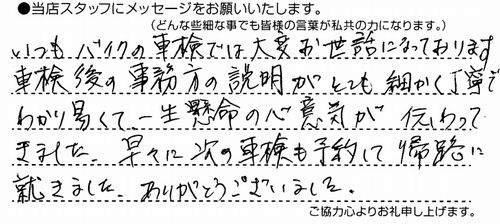 ●当店スタッフにメッセージをお願いいたします。
(どんな些細な事でも皆様の言葉が私共の力になります。)
いつも バイクの車検では大変お世話になっております
車検後の事務方の説明がとても細かく丁寧で
わかり易くて一生懸命の心意気が 伝わって
きました、早々に次の車検も予約して帰路に
就きました、ありがとうございました。
ご協力心よりお礼申し上げます。